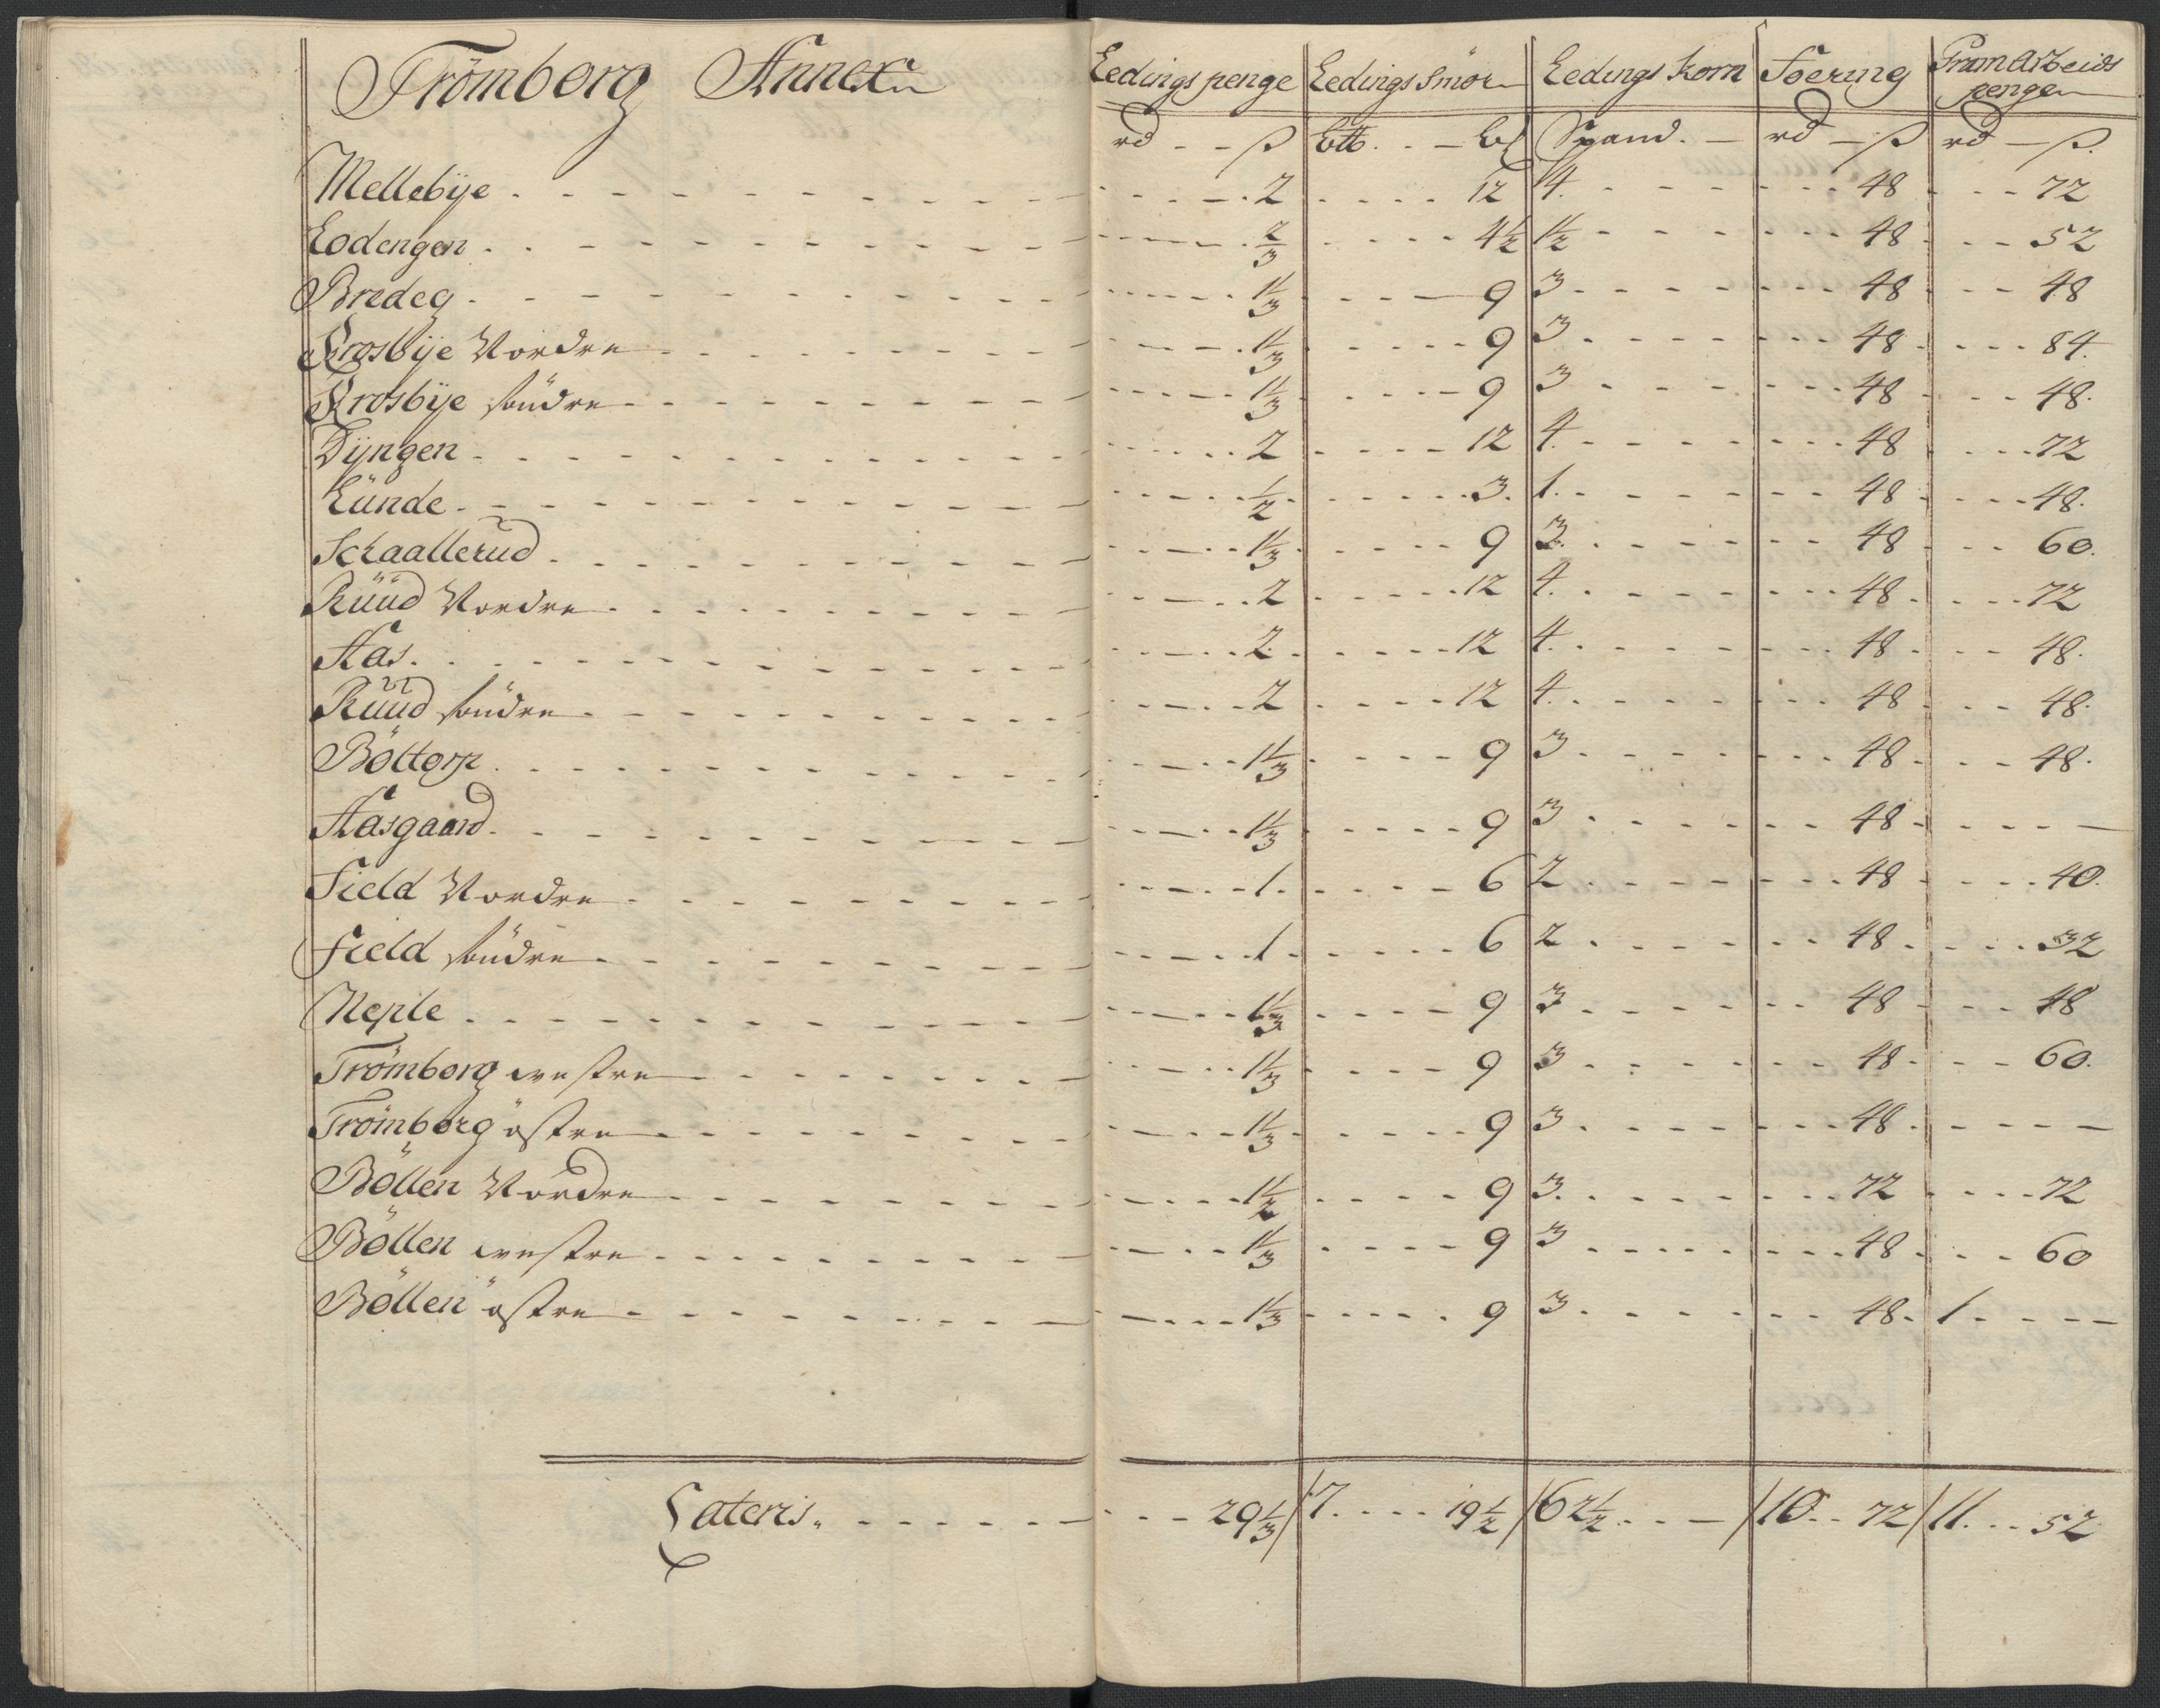 Trömborg Annex
Ledings penge Ledings Smör Ledings Korn Foering FramArbeids
penge
rd - - ß Ltb. - - Spand. - rd - ß rd - ß.
Mellebÿe - - - 2 - - - 12 4. - - - 48 - - - 72
Lodengen - - - 2/3 - - - 4 1/2 1 1/2 - - - 48 - - - 52
Bredeg - - - 1 1/3 - - - 9 3 - - - 48 - - - 48
Krosbÿe Nordre - - - 1 1/3 - - - 9 3 - - - 48 - - - 84.
Krosbÿe söndre - - - 1 1/3 - - - 9 3 - - - 48 - - - 48.
Dÿngen - - - 2 - - - 12 4. - - - 48 - - - 72
Lünde - - - 1/2 - - - 3. 1. - - - 48 - - - 48.
Schaallerud - - - 1 1/3 - - - 9 3. - - - 48 - - - 60.
Rüüd Nordre - - - 2 - - - 12 4. - - - 48 - - - 72
Aas. - - - 2. - - - 12 4. - - - 48 - - - 48.
Rüüd söndre - - - 2 - - - 12 4. - - - 48 - - - 48.
Böltorp - - - 1 1/3 - - - 9 3 - - - 48 - - - 48.
Aasgaard - - - 1 1/3 - - - 9 3 - - - 48 - - - -
Field Nordre - - - 1. - - - 6 2 - - - 48 - - - 40.
Field söndre - - - 1. - - - 6 2 - - - 48 - - - 32
Neple - - - 1 1/3 - - - 9 3 - - - 48 - - - 48
Trömborg westre - - - 1 1/3 - - - 9 3 - - - 48 - - - 60.
Trömborg östre - - - 1 1/3 - - - 9 3 - - - 48 - - - -
Böllen Nordre - - - 1 1/2 - - - 9 3. - - - 72 - - - 72
Böllen westre - - - 1 1/3 - - - 9 3 - - - 48 - - - 60
Böllen östre - - - 1 1/3 - - - 9 3 - - - 48. 1 - - - -
Lateris. - - - 29 1/3 / 7. - - - 19 1/2 / 62 1/2 - - - / 10 - - 72 / 11. - - 52